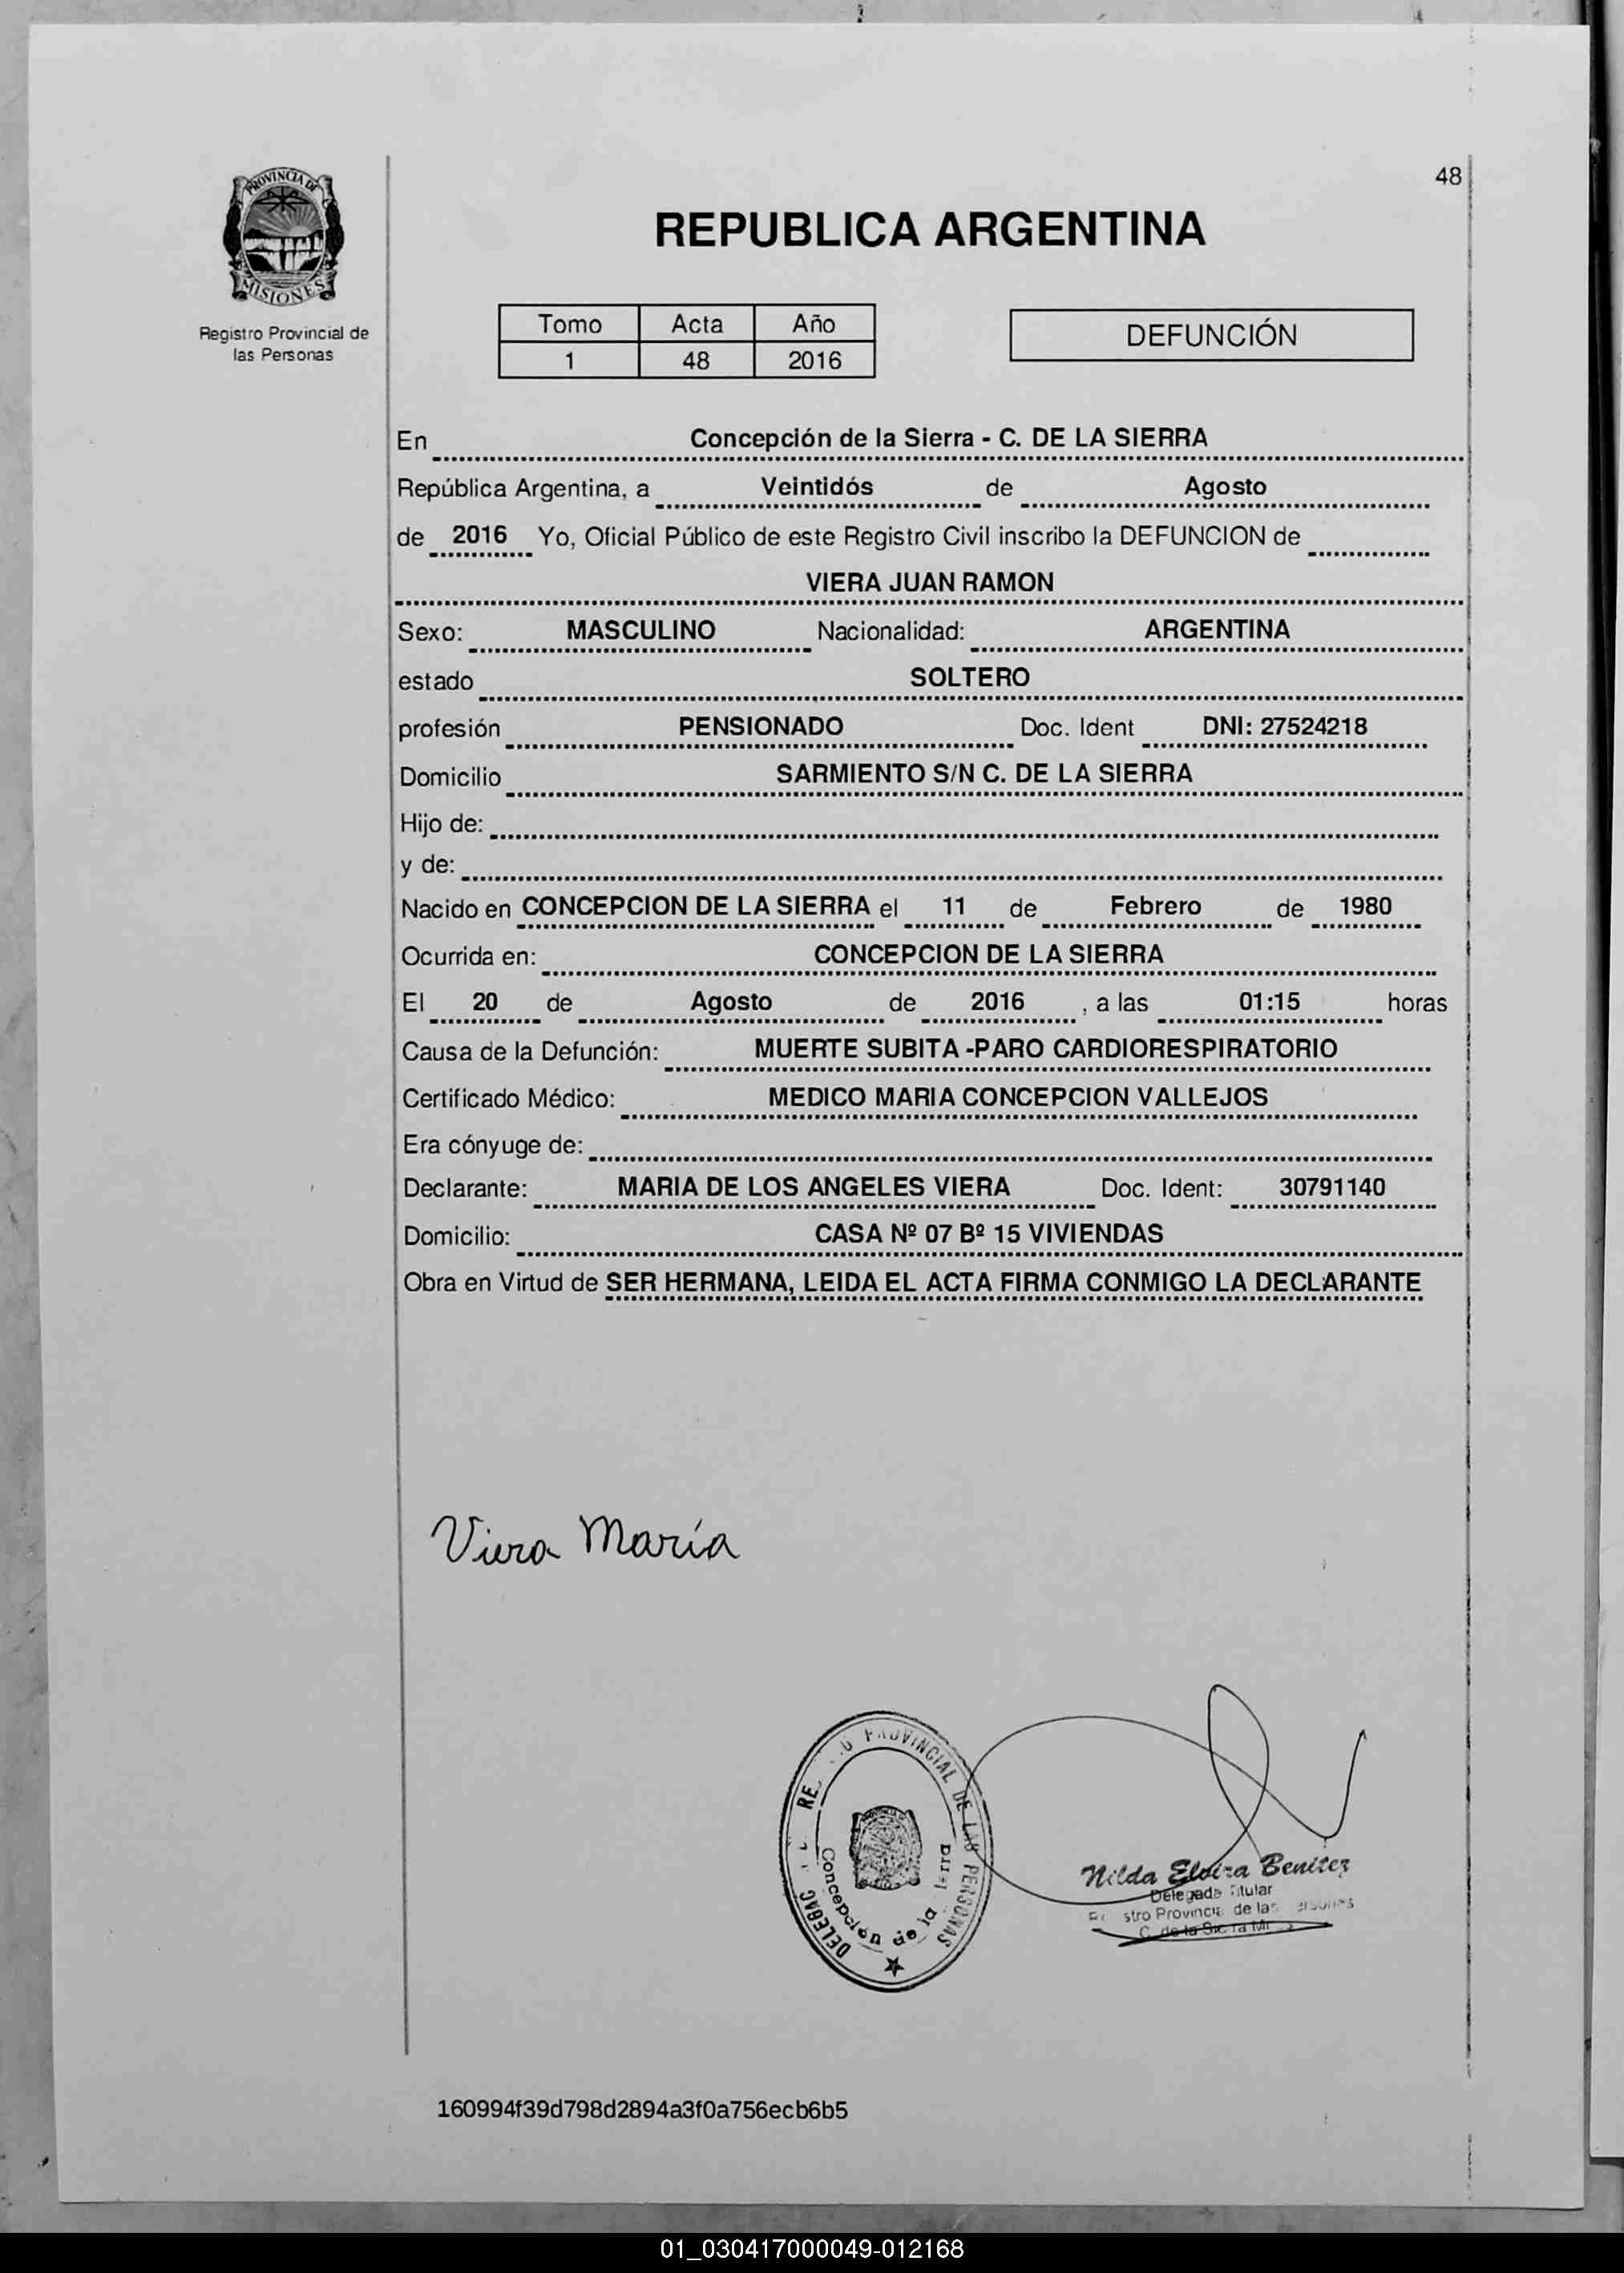 48
PROVINCIA DE
MISIONES
Registro Provincial de
las Personas
REPUBLICA ARGENTINA
Tomo Acta Año
1 48 2016
DEFUNCIÓN
En Concepción de la Sierra - C. DE LA SIERRA
República Argentina, a Veintidós de Agosto
de 2016 Yo, Oficial Público de este Registro Civil inscribo la DEFUNCION de
VIERA JUAN RAMON
Sexo: MASCULINO Nacionalidad: ARGENTINA
estado SOLTERO
profesión PENSIONADO Doc. Ident DNI: 27524218
Domicilio SARMIENTO S/N C. DE LA SIERRA
Hijo de:
y de:
Nacido en CONCEPCION DE LA SIERRA el 11 de Febrero de 1980
Ocurrida en: CONCEPCION DE LA SIERRA
El 20 de Agosto de 2016 , a las 01:15 horas
Causa de la Defunción: MUERTE SUBITA -PARO CARDIORESPIRATORIO
Certificado Médico: MEDICO MARIA CONCEPCION VALLEJOS
Era cónyuge de:
Declarante: MARIA DE LOS ANGELES VIERA Doc. Ident: 30791140
Domicilio: CASA Nº 07 Bº 15 VIVIENDAS
Obra en Virtud de SER HERMANA, LEIDA EL ACTA FIRMA CONMIGO LA DECLARANTE
Viera María
PROVINCIAL DE LAS PERSONAS
Concepción de la
Nilda Elvira Benitez
Delegada Titular
Provincial de las
160994f39d798d2894a3f0a756ecb6b5
01_030417000049-012168